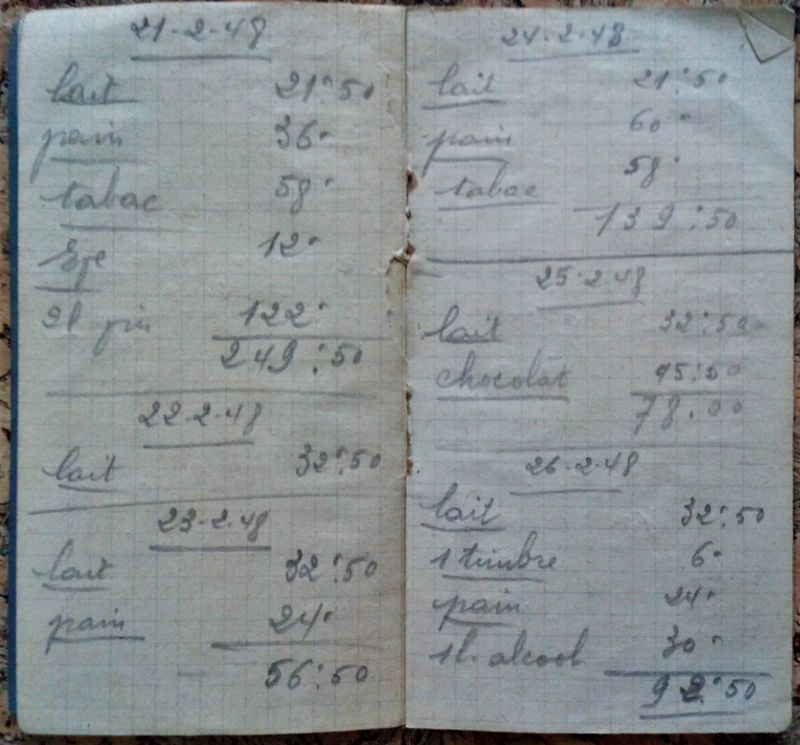 21-2-48
lait 21:50
pain 36.
tabac 58.
12.
2l 122.
249:50
22-2-48
lait 32:50
23-2-48
lait 32:50
pain 24.
56:50
24-2-48
lait 21:50
pain 60.
tabac 58.
139:50
25-2-48
lait 32:50
chocolat 45:50
78.00
26-2-48
lait 32:50
1 timbre 6.
pain 24.
1l. alcool 30.
92:50